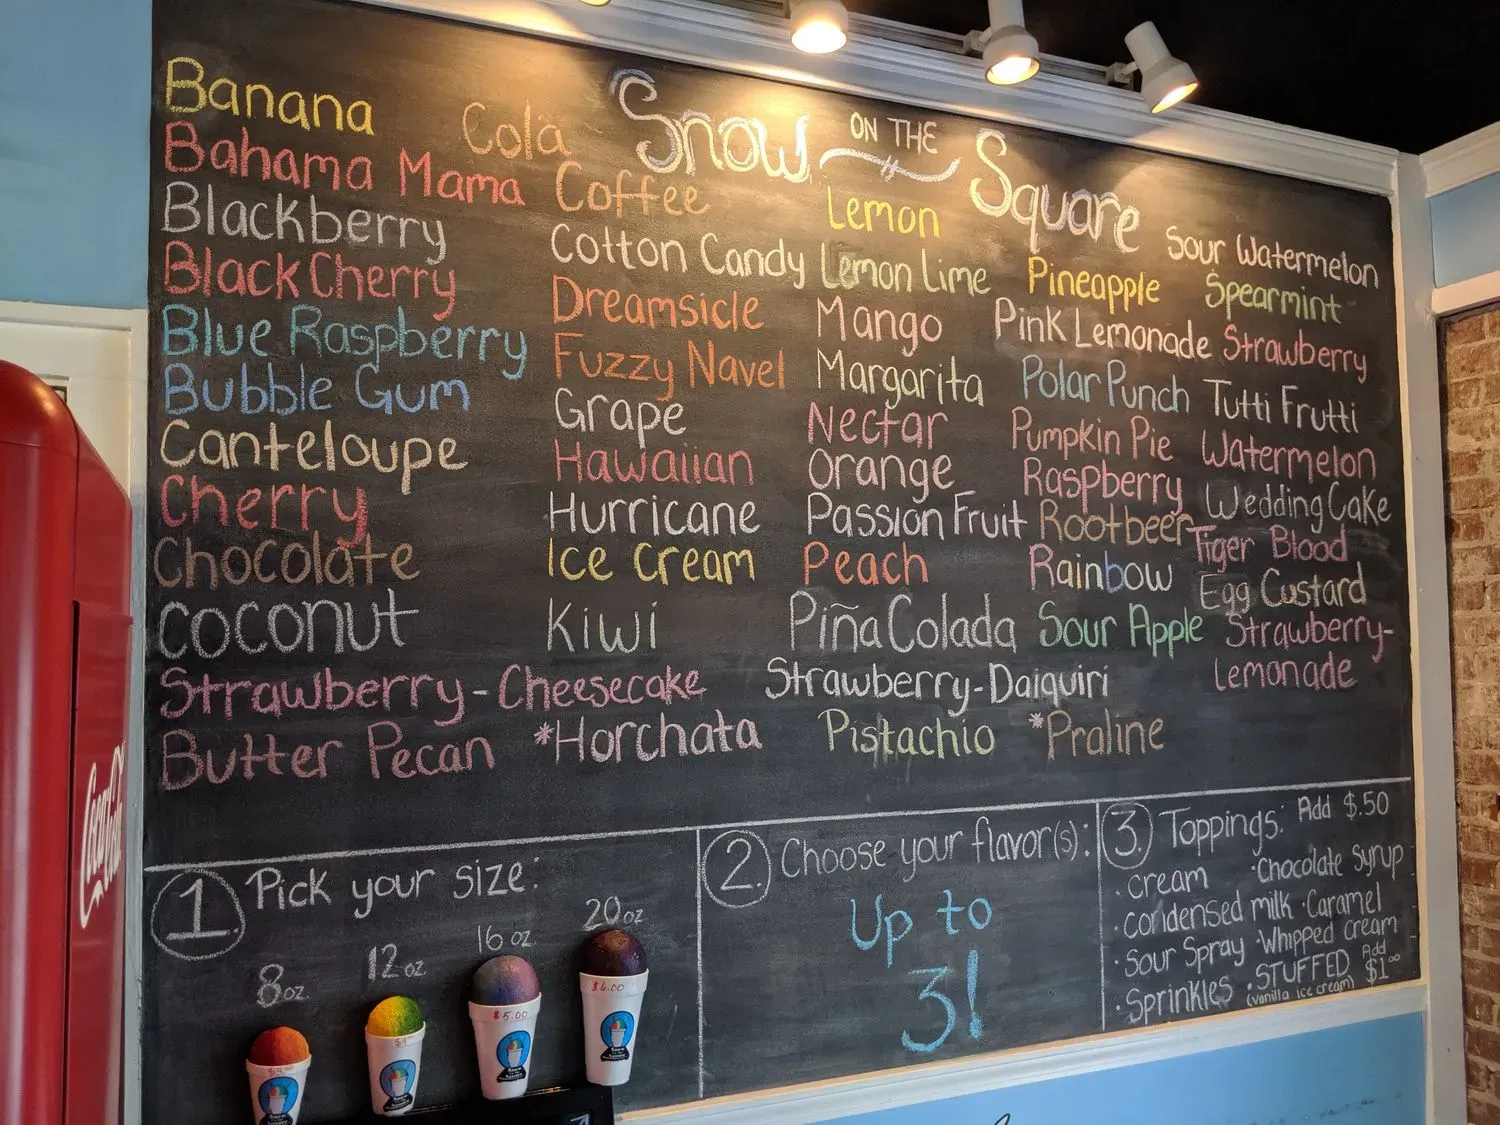 Snow ON THE Square
Banana
Bahama Mama
Blackberry
Black Cherry
Blue Raspberry
Bubble Gum
Canteloupe
Cherry
Chocolate
Coconut
Strawberry-Cheesecake
Butter Pecan
Cola
Coffee
Cotton Candy
Dreamsicle
Fuzzy Navel
Grape
Hawaiian
Hurricane
Ice Cream
Kiwi
*Horchata
Lemon
Lemon Lime
Mango
Margarita
Nectar
Orange
Passion Fruit
Peach
Piña Colada
Strawberry-Daiquiri
Pistachio
Pineapple
Pink Lemonade
Polar Punch
Pumpkin Pie
Raspberry
Rootbeer
Rainbow
Sour Apple
*Praline
Sour Watermelon
Spearmint
Strawberry
Tutti Frutti
Watermelon
Wedding Cake
Tiger Blood
Egg Custard
Strawberry-
Lemonade
1. Pick your size:
8oz.
12 oz.
16 oz.
20 oz
$4
$5.00
$6.00
2. Choose your flavor(s):
Up to
3!
3. Toppings: Add $.50
· Cream
· Chocolate Syrup
· Condensed milk
· Caramel
· Sour Spray
· Whipped cream
· Sprinkles
· STUFFED Add $1.00
(vanilla ice cream)
Coca-Cola